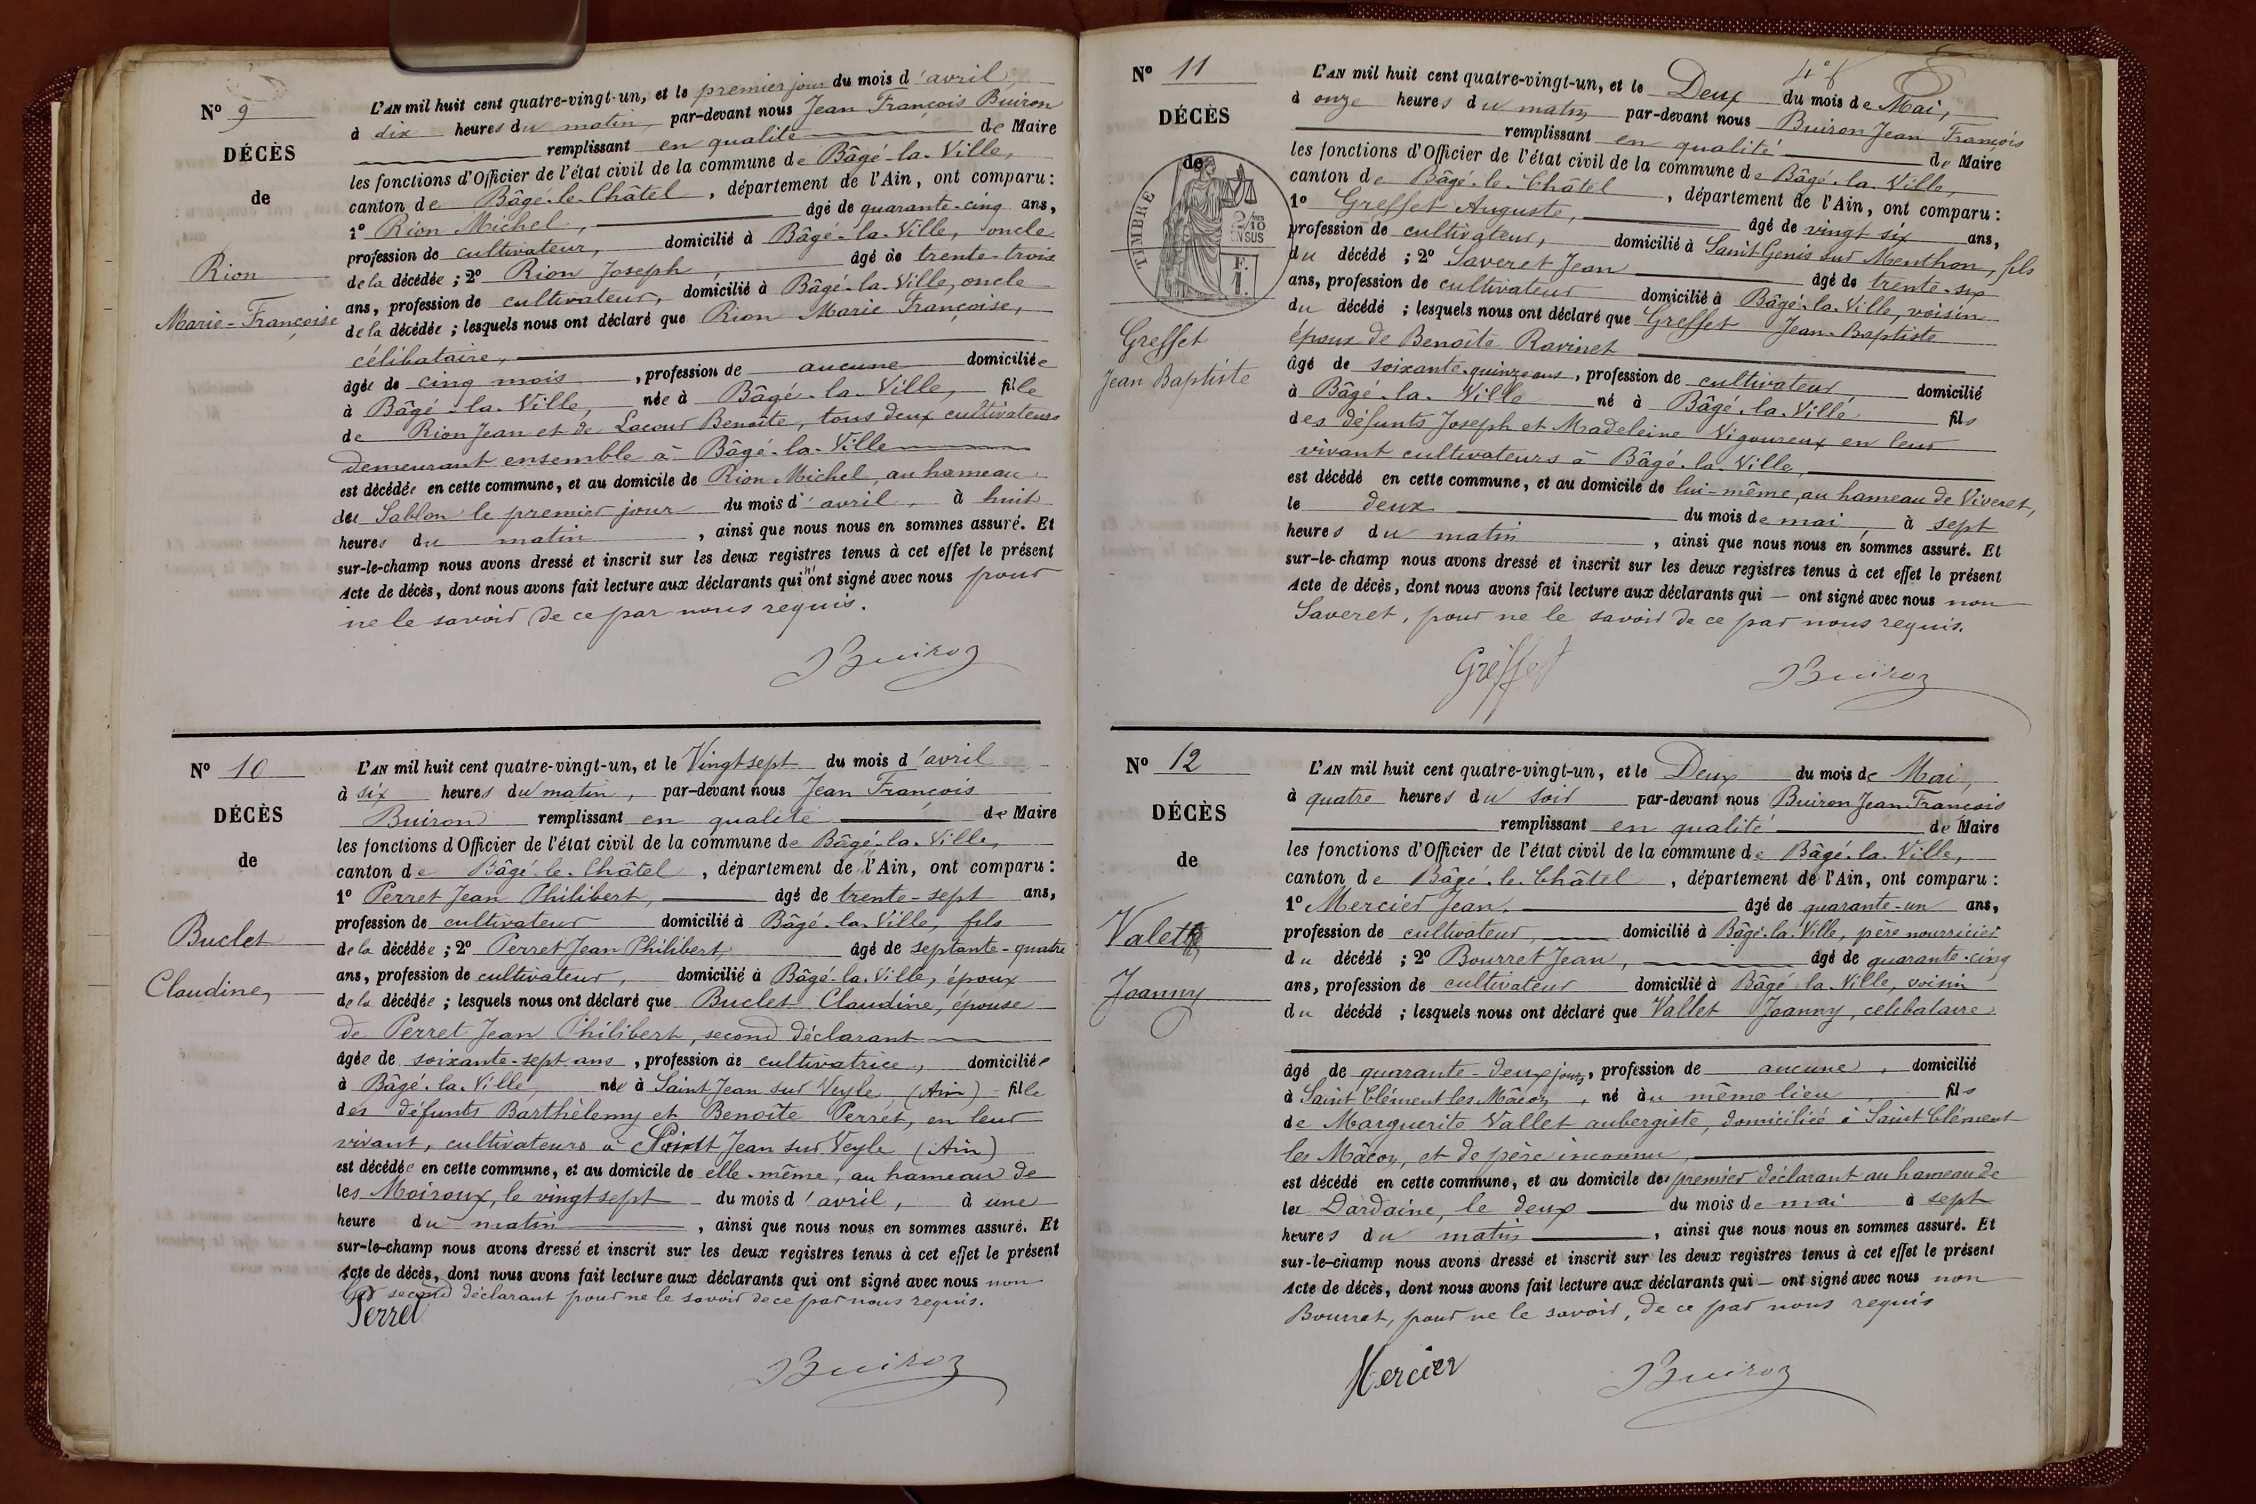 Nº 9
DÉCÈS
de
Rion
Marie-Françoise
L'AN mil huit cent quatre-vingt-un, et le premier jour du mois d'avril,
à dix heures du matin, par-devant nous Jean François Buiron
remplissant en qualité de Maire
les fonctions d'Officier de l'état civil de la commune de Bâgé-la-Ville,
canton de Bâgé-le-Châtel, département de l'Ain, ont comparu :
1º Rion Michel, âgé de quarante-cinq ans,
profession de cultivateur, domicilié à Bâgé-la-Ville, oncle
de la décédée ; 2º Rion Joseph âgé de trente-trois
ans, profession de cultivateur, domicilié à Bâgé-la-Ville, oncle
de la décédée ; lesquels nous ont déclaré que Rion Marie Françoise,
célibataire,
âgée de cinq mois, profession de aucune domiciliée
à Bâgé-la-Ville, née à Bâgé-la-Ville, fille
de Rion Jean et de Lacour Benoîte, tous deux cultivateurs
demeurant ensemble à Bâgé-la-Ville
est décédée en cette commune, et au domicile de Rion Michel, au hameau
des Sablon le premier jour du mois d'avril, à huit
heures du matin, ainsi que nous nous en sommes assuré. Et
sur-le-champ nous avons dressé et inscrit sur les deux registres tenus à cet effet le présent
Acte de décès, dont nous avons fait lecture aux déclarants qui n'ont signé avec nous pour
ne le savoir de ce par nous requis.
JBuiron
Nº 10
DÉCÈS
de
Buclet
Claudine,
L'AN mil huit cent quatre-vingt-un, et le Vingt sept du mois d'avril
à six heures du matin, par-devant nous Jean François
Buiron remplissant en qualité de Maire
les fonctions d'Officier de l'état civil de la commune de Bâgé-la-Ville,
canton de Bâgé-le-Châtel, département de l'Ain, ont comparu :
1º Perret Jean Philibert, âgé de trente-sept ans,
profession de cultivateur domicilié à Bâgé-la-Ville, fils
de la décédée ; 2º Perret Jean Philibert, âgé de septante-quatre
ans, profession de cultivateur, domicilié à Bâgé-la-Ville, époux
de la décédée ; lesquels nous ont déclaré que Buclet Claudine, épouse
de Perret Jean Philibert, second déclarant
âgée de soixante-sept ans, profession de cultivatrice, domiciliée
à Bâgé-la-Ville, née à Saint Jean sur Veyle, (Ain) fille
des défunts Barthélemy et Benoîte Perret, en leur
vivant, cultivateurs à Saint Jean sur Veyle (Ain)
est décédée en cette commune, et au domicile de elle-même, au hameau de
les Moiroux, le vingt sept du mois d'avril, à une
heure du matin, ainsi que nous nous en sommes assuré. Et
sur-le-champ nous avons dressé et inscrit sur les deux registres tenus à cet effet le présent
Acte de décès, dont nous avons fait lecture aux déclarants qui ont signé avec nous non
le second déclarant pour ne le savoir de ce par nous requis.
Perret
JBuiron
Nº 11
DÉCÈS
de
TIMBRE
Greffet
Jean Baptiste
L'AN mil huit cent quatre-vingt-un, et le Deux du mois de Mai,
à onze heures du matin par-devant nous Buiron Jean François
remplissant en qualité de Maire
les fonctions d'Officier de l'état civil de la commune de Bâgé-la-Ville,
canton de Bâgé-le-Châtel, département de l'Ain, ont comparu :
1º Greffet Auguste, âgé de vingt six ans,
profession de cultivateur, domicilié à Saint Genis sur Menthon, fils
du décédé ; 2º Saveret Jean âgé de trente-six
ans, profession de cultivateur domicilié à Bâgé-la-Ville, voisin
du décédé ; lesquels nous ont déclaré que Greffet Jean-Baptiste
époux de Benoîte Ravinet
âgé de soixante-quinze ans, profession de cultivateur domicilié
à Bâgé-la-Ville né à Bâgé-la-Ville fils
des défunts Joseph et Madeleine Vigoureux en leur
vivant cultivateurs à Bâgé-la-Ville,
est décédé en cette commune, et au domicile de lui-même, au hameau de Viveret,
le deux du mois de mai, à sept
heures du matin, ainsi que nous nous en sommes assuré. Et
sur-le-champ nous avons dressé et inscrit sur les deux registres tenus à cet effet le présent
Acte de décès, dont nous avons fait lecture aux déclarants qui — ont signé avec nous non
Saveret, pour ne le savoir de ce par nous requis.
Greffet JBuiron
Nº 12
DÉCÈS
de
Valett
Joanny
L'AN mil huit cent quatre-vingt-un, et le Deux du mois de Mai,
à quatre heures du soir par-devant nous Buiron Jean-François
remplissant en qualité de Maire
les fonctions d'Officier de l'état civil de la commune de Bâgé-la-Ville,
canton de Bâgé-le-Châtel, département de l'Ain, ont comparu :
1º Mercier Jean, âgé de quarante-un ans,
profession de cultivateur, domicilié à Bâgé-la-Ville, père nourricier
du décédé ; 2º Bourret Jean, âgé de quarante-cinq
ans, profession de cultivateur domicilié à Bâgé la Ville, voisin
du décédé ; lesquels nous ont déclaré que Vallet Joanny, célibataire
âgé de quarante-deux jours, profession de aucune, domicilié
à Saint Clément les Mâcon, né au même lieu, fils
de Marguerite Vallet aubergiste, domiciliée à Saint Clément
les Mâcon, et de père inconnu,
est décédé en cette commune, et au domicile du premier déclarant au hameau de
les Dardaine, le deux du mois de mai à sept
heures du matin, ainsi que nous nous en sommes assuré. Et
sur-le-champ nous avons dressé et inscrit sur les deux registres tenus à cet effet le présent
Acte de décès, dont nous avons fait lecture aux déclarants qui — ont signé avec nous non
Bourret, pour ne le savoir, de ce par nous requis
Mercier JBuiron